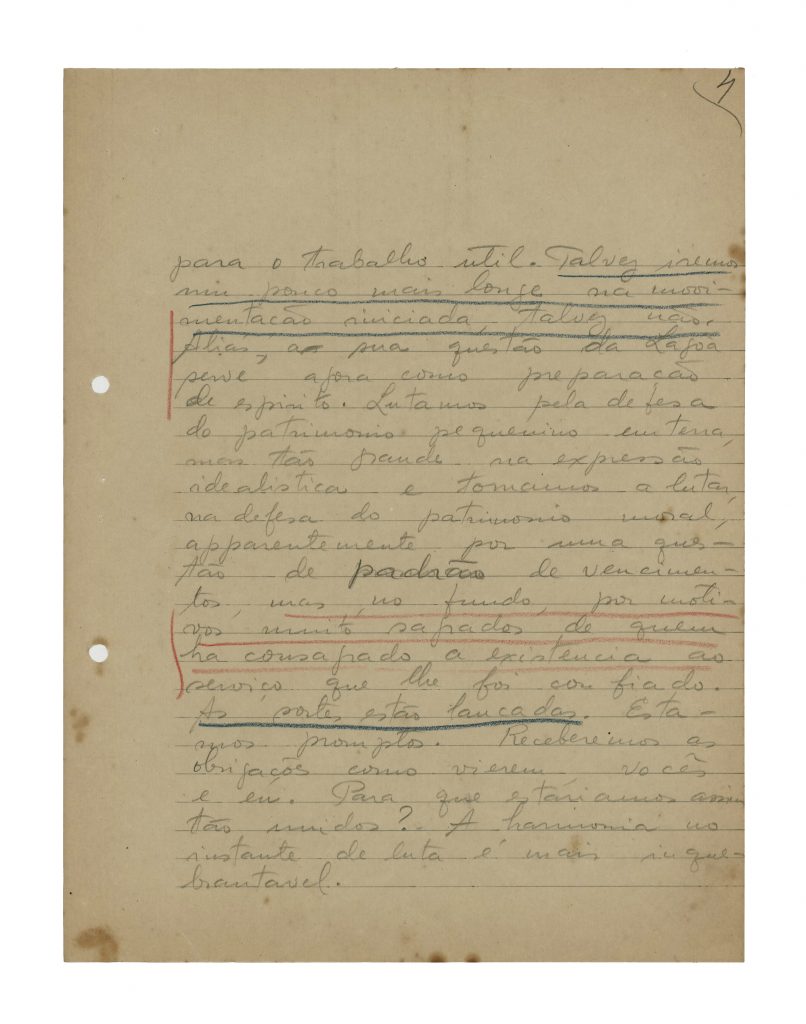 4
para o trabalho util. Talvez iremos
um pouco mais longe na movi-
mentação iniciada, talvez não.
Aliás, a sua questão da Lagôa
serve agora como preparação
de espirito. Lutamos pela defesa
do patrimonio pequenino em terra,
mas tão grande na expressão
idealistica e tornamos a lutar,
na defesa do patrimonio moral,
apparentemente por uma ques-
tão de padrão de vencimen-
tos, mas, no fundo, por moti-
vos muito sagrados de quem
ha consagrado a existencia ao
serviço que lhe foi confiado.
As sortes estão lançadas. Esta-
mos promptos. Receberemos as
obrigações como vierem, vocês
e eu. Para que estariamos assim
tão unidos? A harmonia no
instante de luta é mais inque-
brantavel.